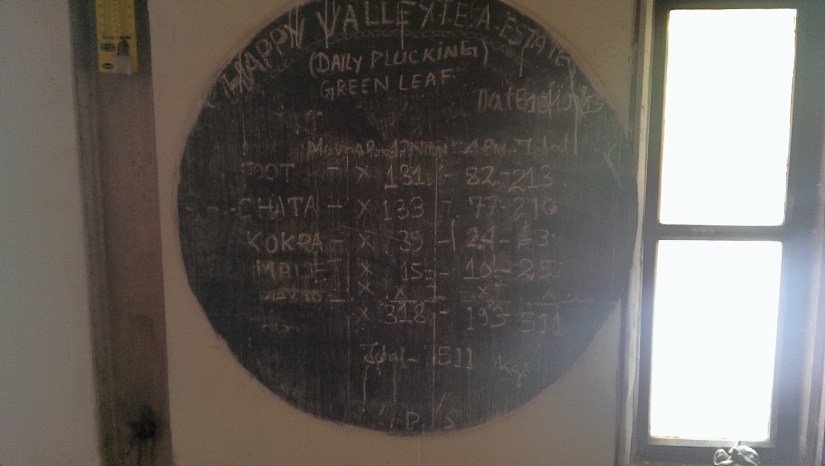 HAPPY VALLEY TEA ESTATE
(DAILY PLUCKING)
GREEN LEAF
FOOT - X 131 - 82 - 213
CHATA - X 133 - 77 - 210
KOKRA - X 39 - 24 - 63
X 15 - 10 - 25
X X X
X 318 - 193 - 511
Total - 511 Kgs
P.S